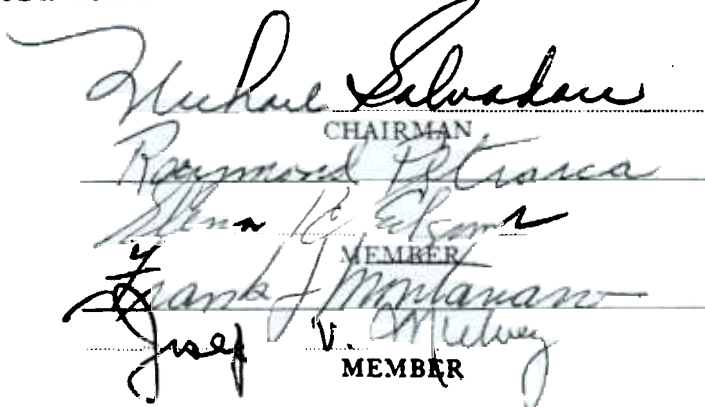 Michael Salvadore
CHAIRMAN
Raymond Petrarca
Glenn
MEMBER
Frank J Montanaro
Josep V.
MEMBER